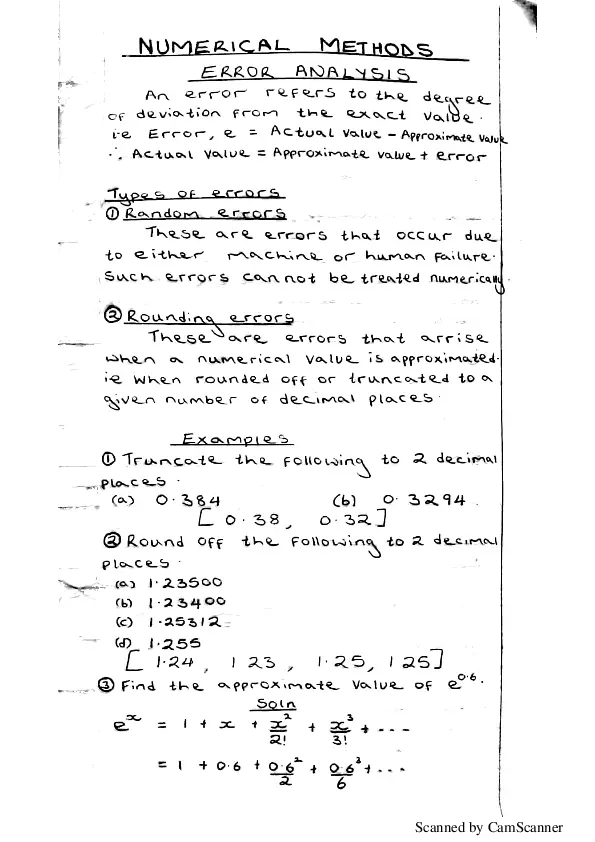 NUMERICAL METHODS
ERROR ANALYSIS
An error refers to the degree
of deviation from the exact value.
ie Error, e = Actual value - Approximate value
∴ Actual value = Approximate value + error
Types of errors
① Random errors
These are errors that occur due
to either machine or human failure.
Such errors cannot be treated numerically.
② Rounding errors
These are errors that arrise
when a numerical value is approximated.
ie when rounded off or truncated to a
given number of decimal places.
Examples
① Truncate the following to 2 decimal
places.
(a) 0.384 (b) 0.3294
[ 0.38, 0.32 ]
② Round off the following to 2 decimal
places.
(a) 1.23500
(b) 1.23400
(c) 1.25312
(d) 1.255
[ 1.24, 1.23, 1.25, 1.25 ]
③ Find the approximate value of e^0.6.
Soln
e^x = 1 + x + x²/2! + x³/3! + ---
= 1 + 0.6 + 0.6²/2 + 0.6³/6 + ...
Scanned by CamScanner